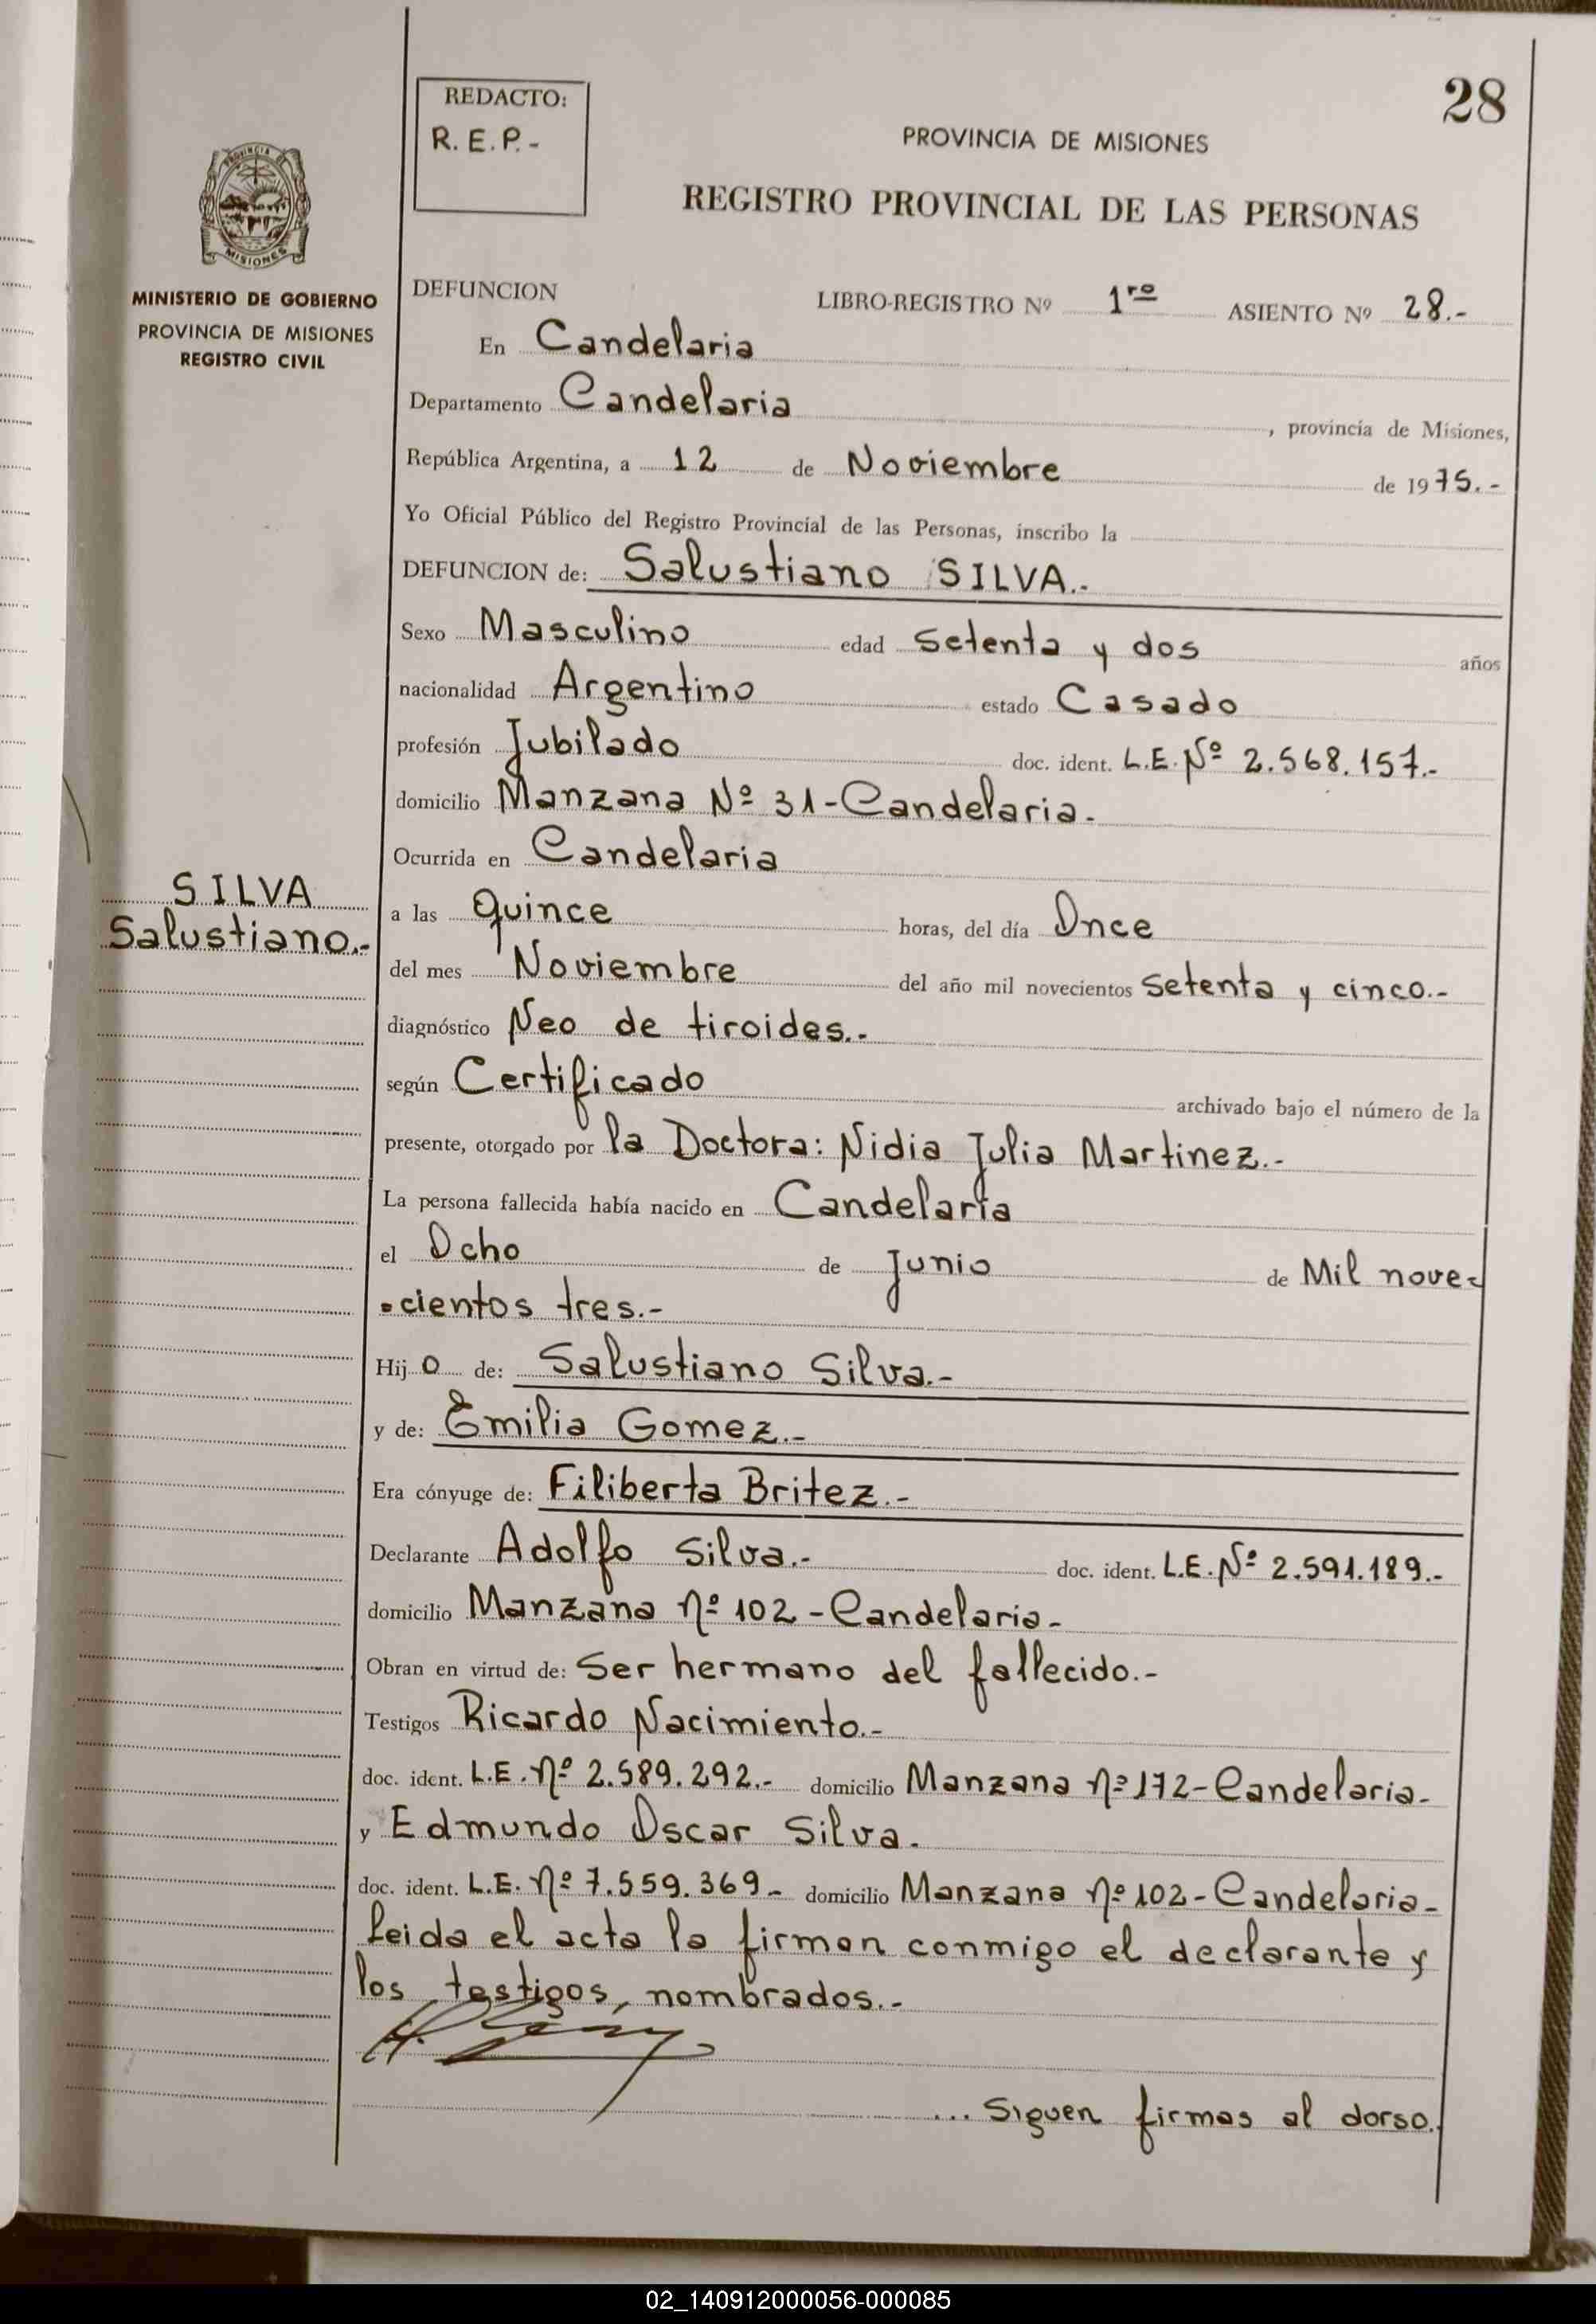 28
REDACTO:
R.E.P.-
PROVINCIA DE MISIONES
REGISTRO PROVINCIAL DE LAS PERSONAS
PROVINCIA DE
MISIONES
MINISTERIO DE GOBIERNO
PROVINCIA DE MISIONES
REGISTRO CIVIL
DEFUNCION LIBRO-REGISTRO Nº 1ro ASIENTO Nº 28.-
En Candelaria
Departamento Candelaria, provincia de Misiones,
República Argentina, a 12 de Noviembre de 1975.-
Yo Oficial Público del Registro Provincial de las Personas, inscribo la
DEFUNCION de: Salustiano SILVA.-
Sexo Masculino edad Setenta y dos años
nacionalidad Argentino estado Casado
profesión Jubilado doc. ident. L.E. Nº 2.568.157.-
domicilio Manzana Nº 31-Candelaria.-
Ocurrida en Candelaria
SILVA
Salustiano.-
a las quince horas, del día Once
del mes Noviembre del año mil novecientos setenta y cinco.-
diagnóstico Neo de tiroides.-
según Certificado archivado bajo el número de la
presente, otorgado por la Doctora: Nidia Julia Martinez.-
La persona fallecida había nacido en Candelaria
el Ocho de Junio de Mil nove-
cientos tres.-
Hijo de: Salustiano Silva.-
y de: Emilia Gomez.-
Era cónyuge de: Filiberta Britez.-
Declarante Adolfo Silva.- doc. ident. L.E. Nº 2.591.189.-
domicilio Manzana nº 102-Candelaria-
Obran en virtud de: Ser hermano del fallecido.-
Testigos Ricardo Nacimiento.-
doc. ident. L.E. nº 2.589.292.- domicilio Manzana nº 172-Candelaria-
y Edmundo Oscar Silva.-
doc. ident. L.E. nº 7.559.369- domicilio Manzana nº 102-Candelaria-
Leida el acta la firman conmigo el declarante y
los testigos, nombrados.-
... Siguen firmas al dorso.
02_140912000056-000085